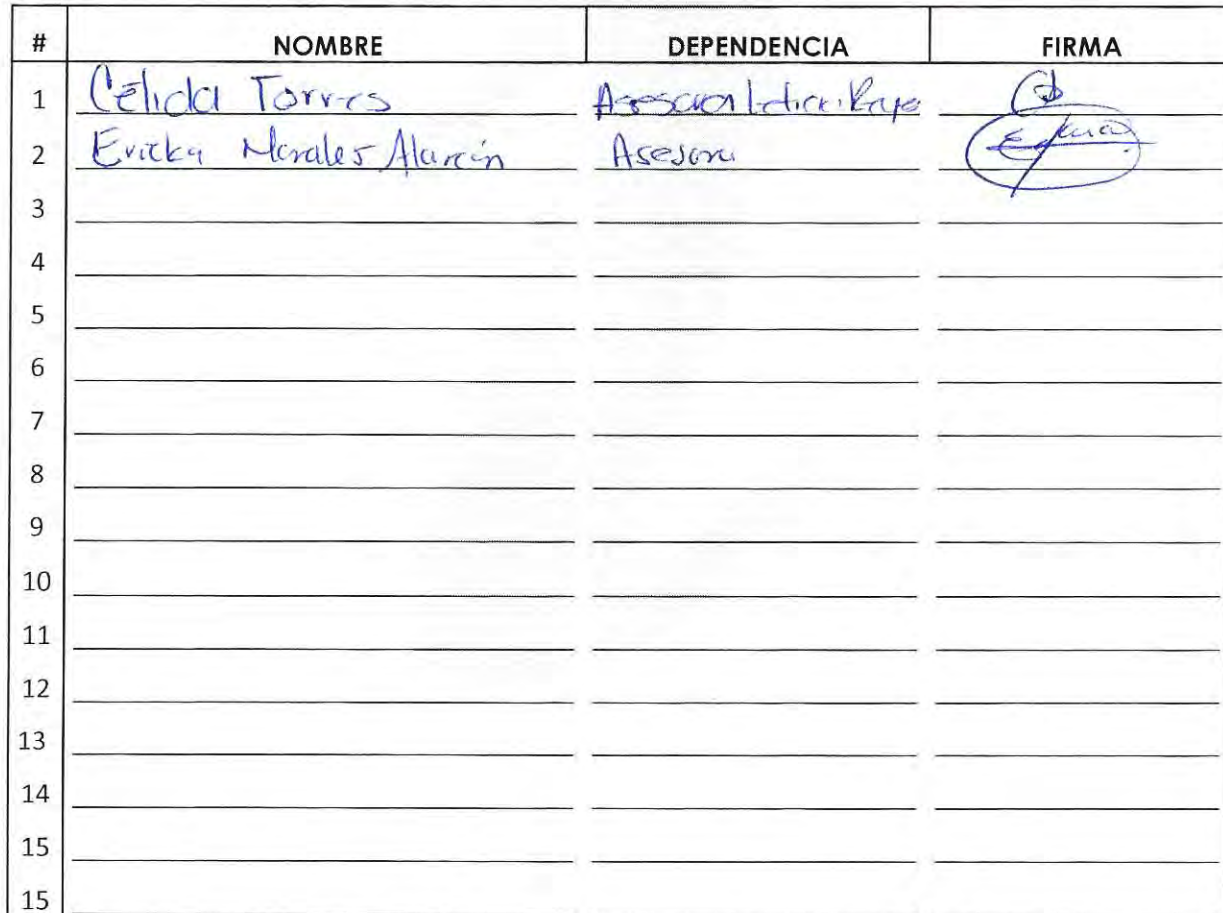 # NOMBRE DEPENDENCIA FIRMA
1 Célida Torres Asesora
2 Ericka Morales Alarcón Asesora
3
4
5
6
7
8
9
10
11
12
13
14
15
15